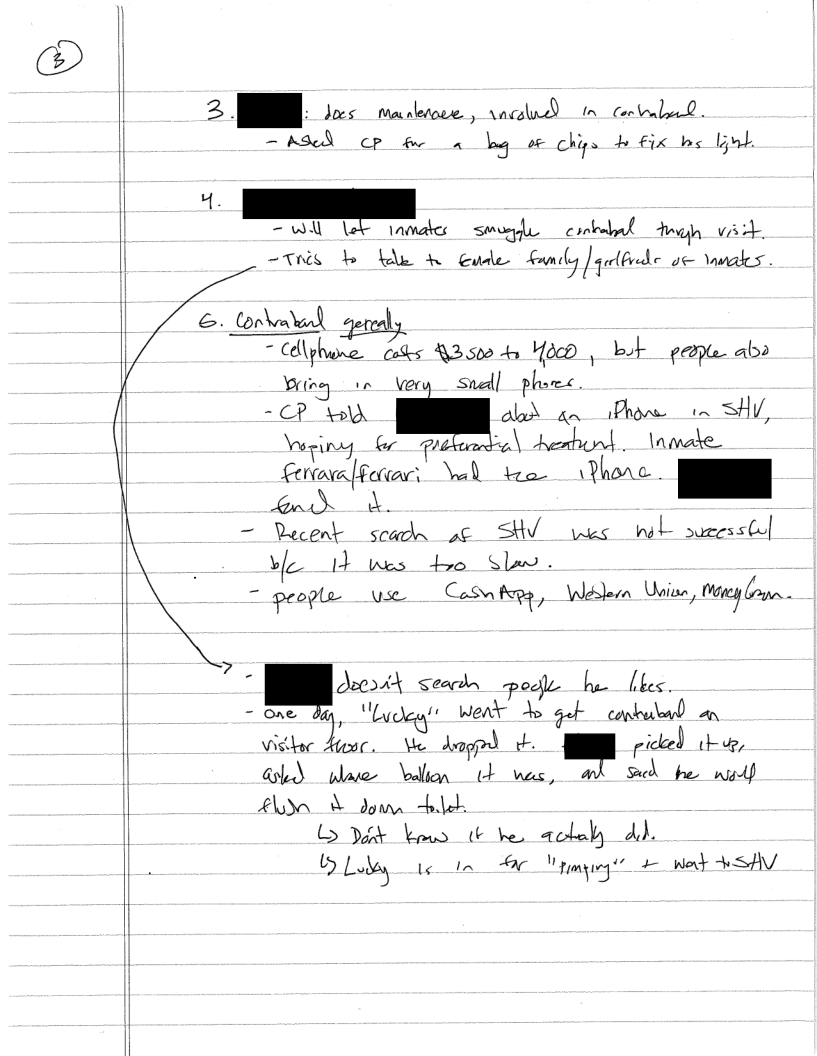 3
3. : does maintenance, involved in contraband.
- Asked CP for a bag of chips to fix his light.
4.
- Will let inmates smuggle contraband through visit.
- Tries to talk to female family/girlfriends of inmates.
6. Contraband generally
- Cellphone costs $3500 to 4,000, but people also
bring in very small phones.
- CP told about an iPhone in SHU,
hoping for preferential treatment. Inmate
ferrara/ferrari had the iPhone.
found it.
- Recent search of SHU was not successful
b/c it was too slow.
- people use CashApp, Western Union, MoneyGram.
- doesn't search people he likes.
- One day, "Lucky" went to get contraband on
visitor floor. He dropped it. picked it up,
asked whose balloon it was, and said he would
flush it down toilet.
↳ Don't know if he actually did.
↳ Lucky is in for "pimping" + went to SHU